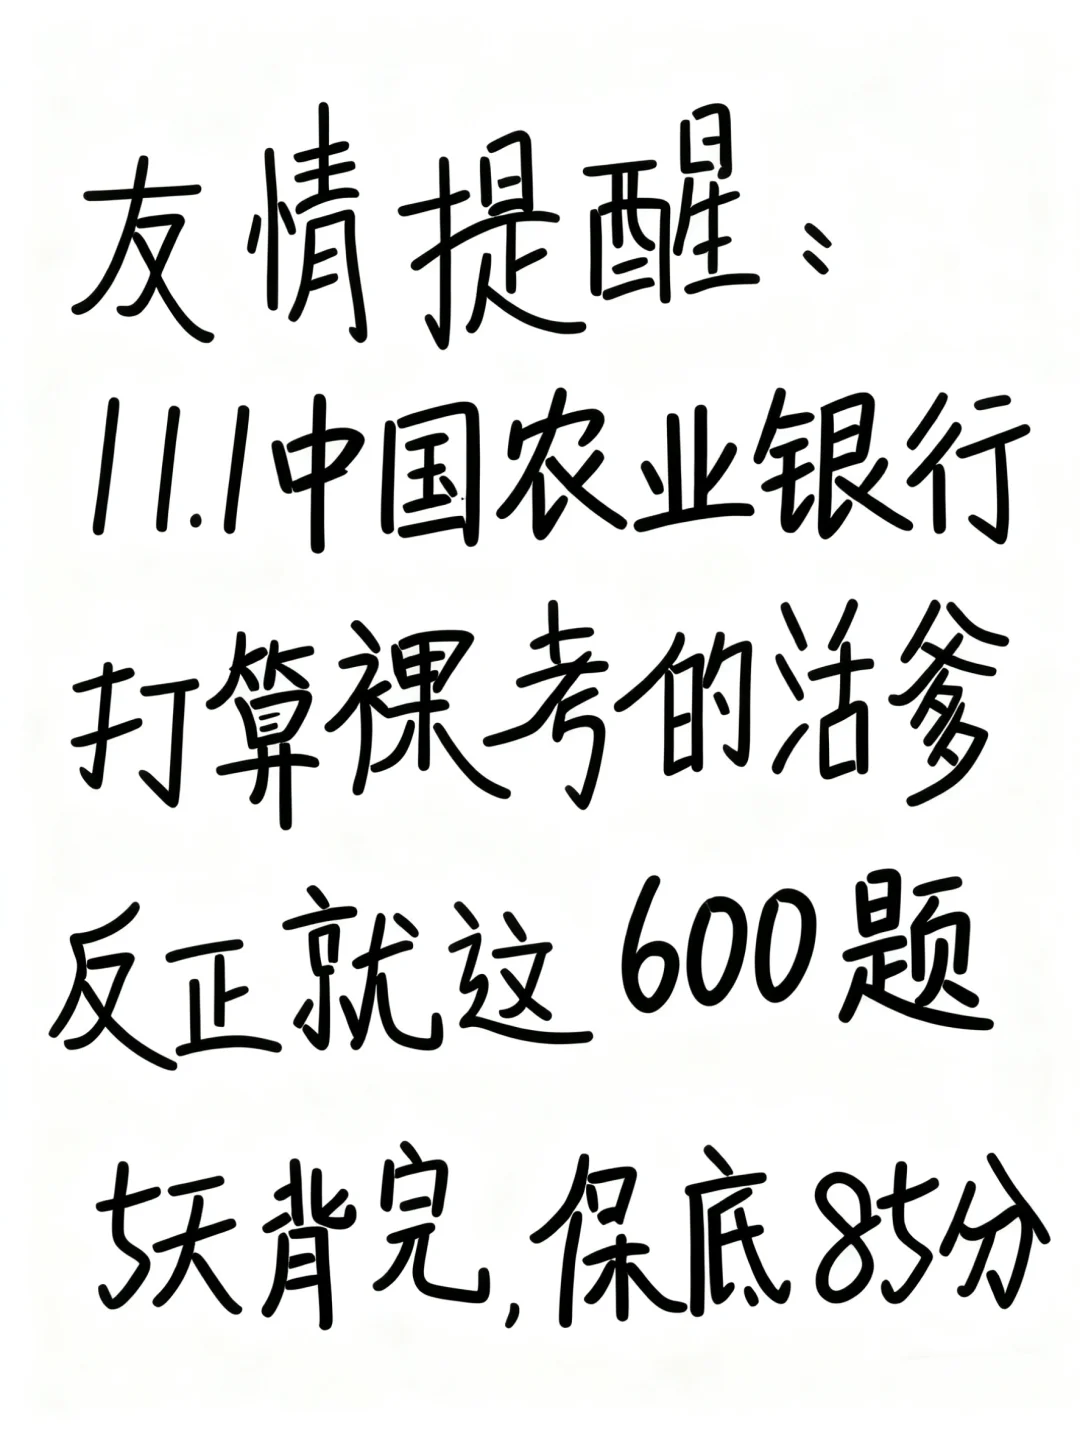 友情提醒：
11.1中国农业银行
打算裸考的活爹
反正就这600题
5天背完,保底85分